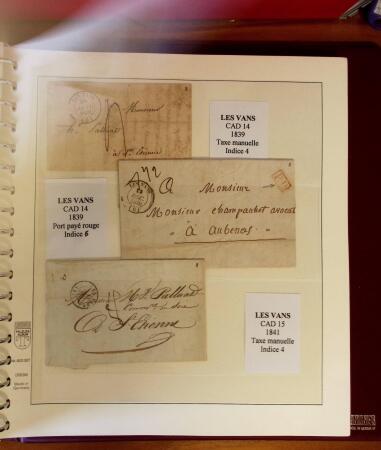 Monsieur
LES VANS
CAD 14
1839
Taxe manuelle
Indice 4
LES VANS
CAD 14
1839
Port payé rouge
Indice 6
A Monsieur
Monsieur champanhet avocat
à Aubenas
LES VANS
CAD 15
1841
Taxe manuelle
Indice 4
Monsieur
A St Etienne
Made in
Germany